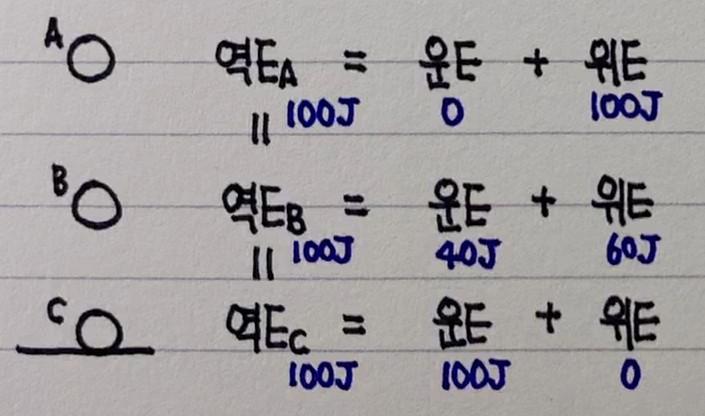 A 역E_A = 운E + 위E
100J 0 100J
||
B 역E_B = 운E + 위E
100J 40J 60J
||
C 역E_C = 운E + 위E
100J 100J 0